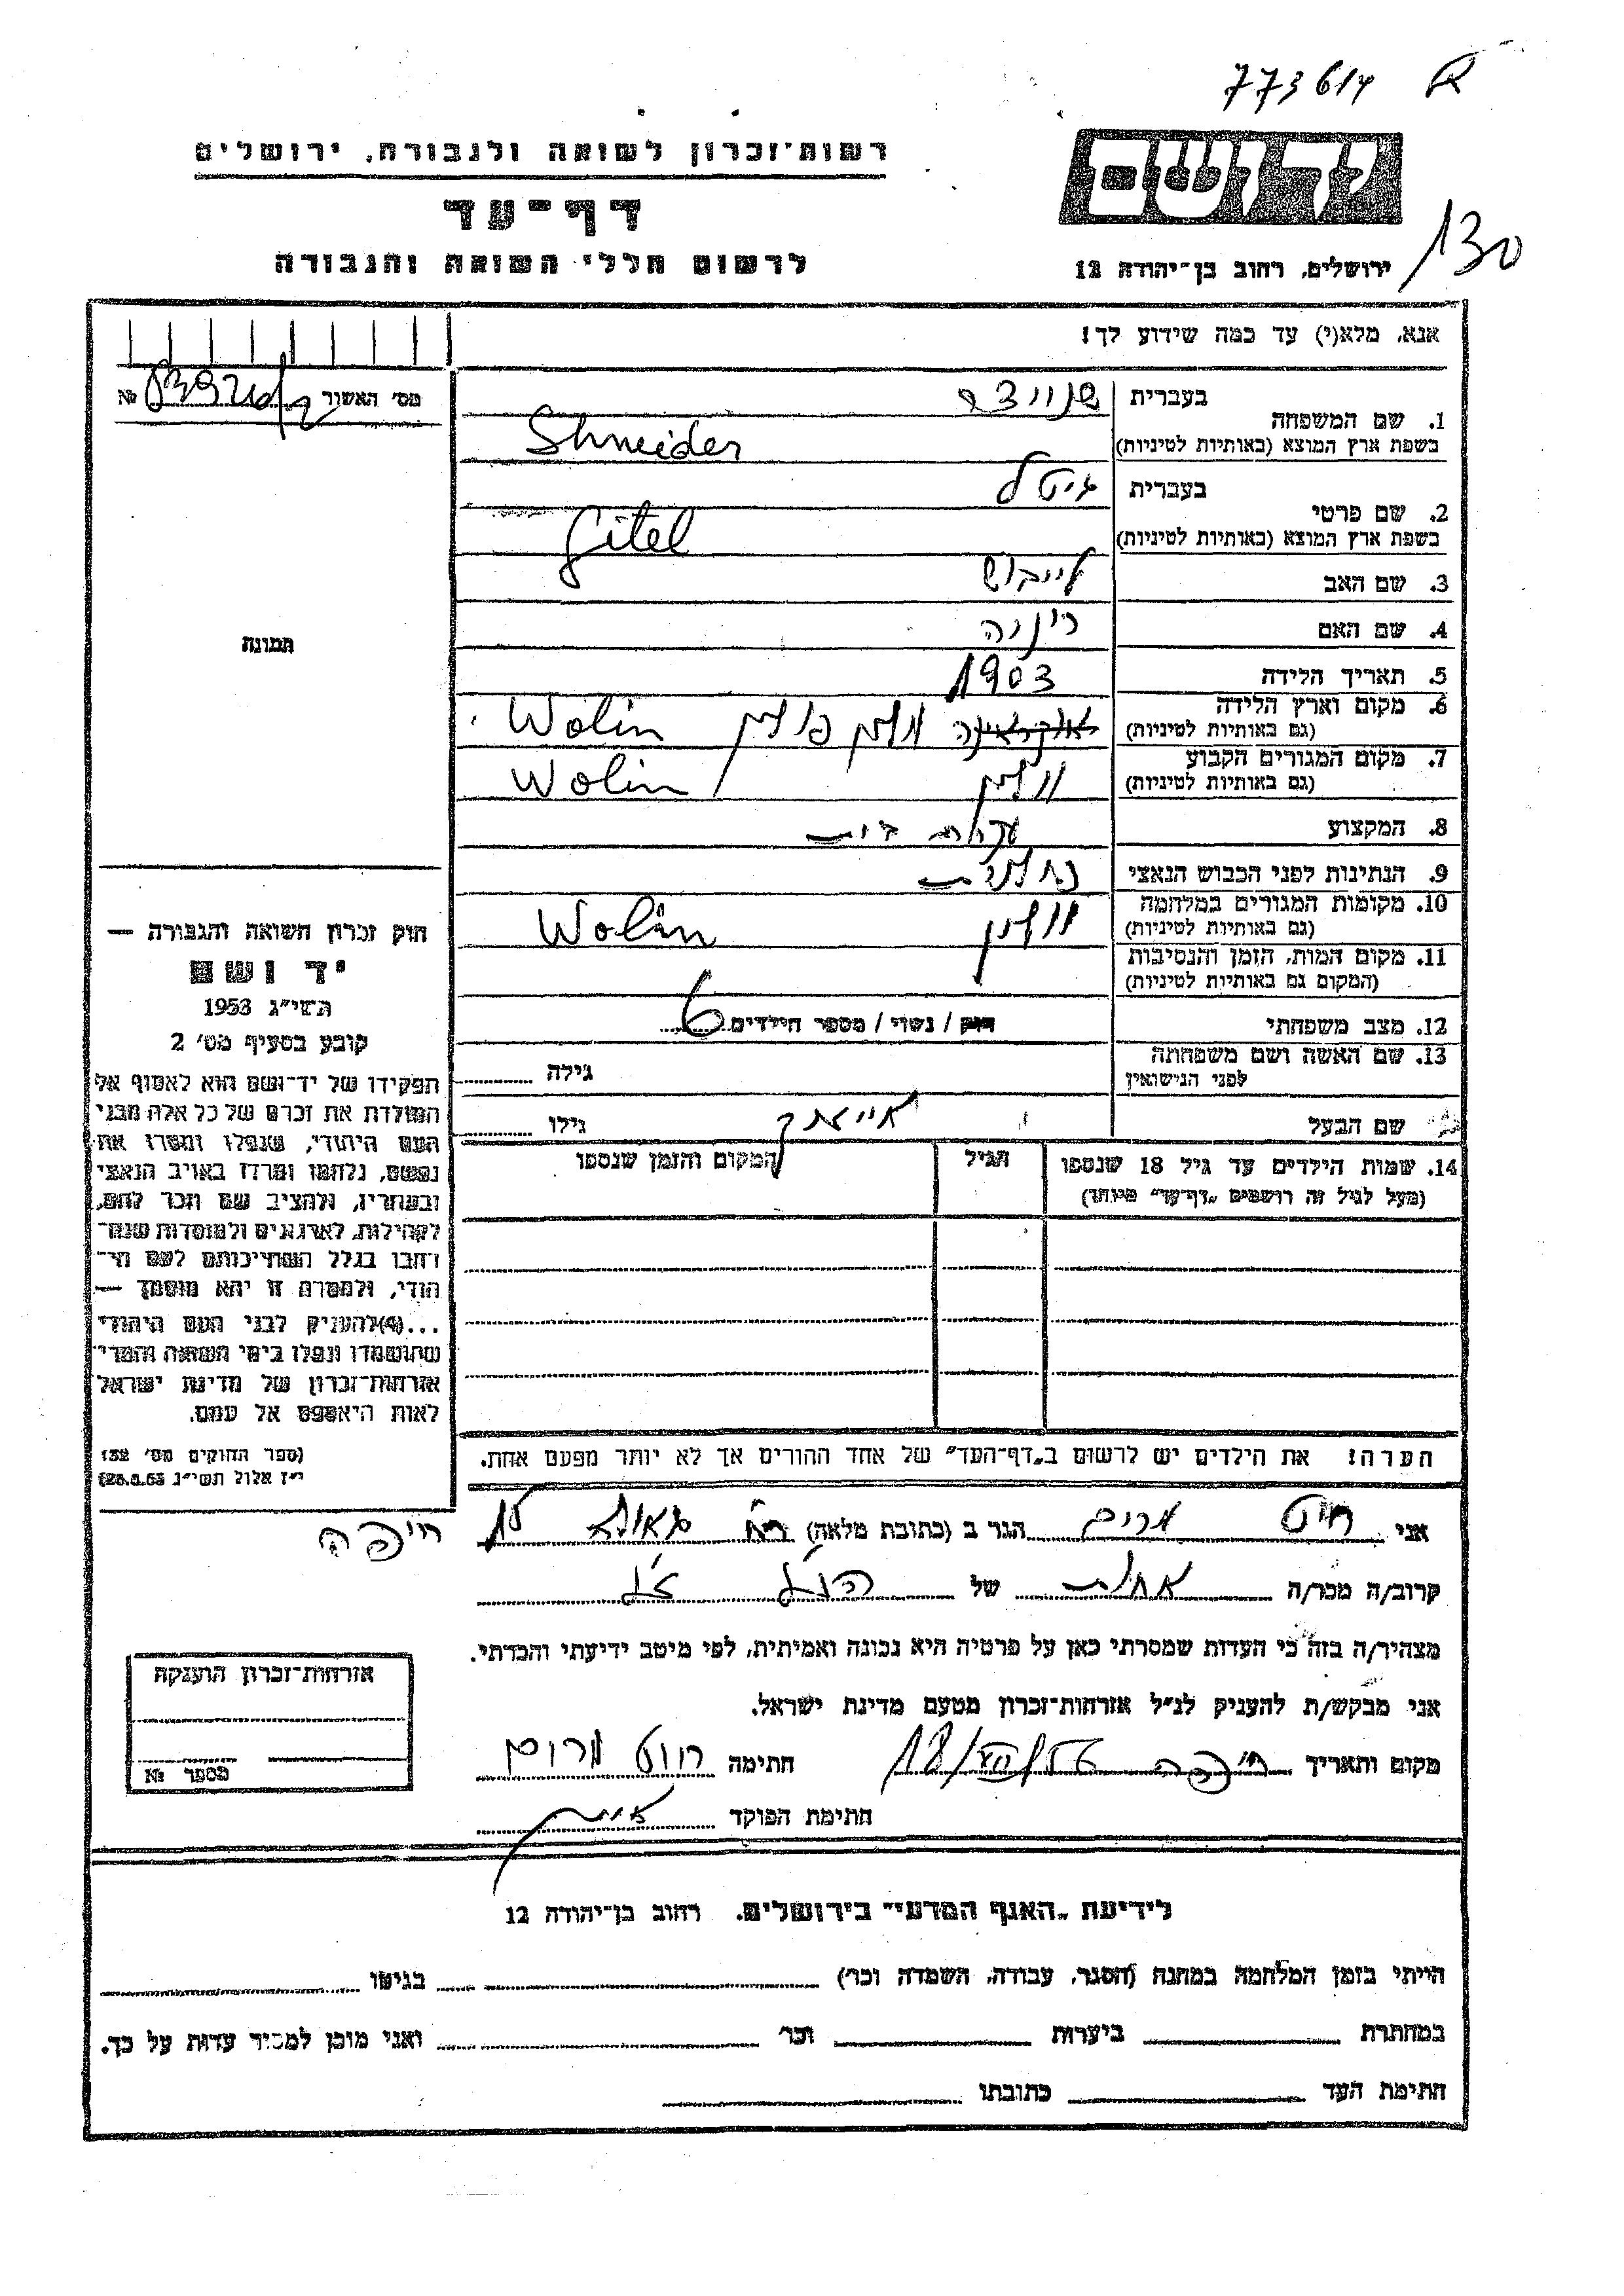 773614
רשות־זכרון לשואה ולגבורה, ירושלים
דף־עד
לרשום חללי השואה והגבורה
יד ושם
ירושלים, רחוב בן־יהודה 12
130
אנא, מלא(י) עד כמה שידוע לך!
מס׳ האשור №
1. שם המשפחה
בעברית שניידר
בשפת ארץ המוצא (באותיות לטיניות) Shneider
2. שם פרטי
בעברית גיטל
בשפת ארץ המוצא (באותיות לטיניות) Gitel
3. שם האב לייבוש
4. שם האם
5. תאריך הלידה 1903
6. מקום וארץ הלידה (גם באותיות לטיניות) אוקראינה וולין פולין Wolin
7. מקום המגורים הקבוע (גם באותיות לטיניות) וולין Wolin
8. המקצוע עקרת בית
9. הנתינות לפני הכבוש הנאצי
10. מקומות המגורים במלחמה (גם באותיות לטיניות) וולין Wolin
11. מקום המות, הזמן והנסיבות (המקום גם באותיות לטיניות)
12. מצב משפחתי רווק / נשוי / מספר הילדים 6
13. שם האשה ושם משפחתה לפני הנישואין גילה
שם הבעל אייזיק גילו
14. שמות הילדים עד גיל 18 שנספו הגיל המקום והזמן שנספו
(מעל לגיל זה רושמים „דף־עד״ מיוחד)
הערה! את הילדים יש לרשום ב„דף־העד״ של אחד ההורים אך לא יותר מפעם אחת.
תמונה
חוק זכרון השואה והגבורה —
יד ושם
תשי״ג 1953
קובע בסעיף מס׳ 2
תפקידו של יד־ושם הוא לאסוף אל
המולדת את זכרם של כל אלה מבני
העם היהודי, שנפלו ומסרו את
נפשם, נלחמו ומרדו באויב הנאצי
ובעוזריו, ולהציב שם וזכר להם,
לקהילות, לארגונים ולמוסדות שנח־
רבו בגלל השתייכותם לעם הי־
הודי, ולמטרה זו יהא מוסמך —
...(4)להעניק לבני העם היהודי
שהושמדו ונפלו בימי השואה והמרי
אזרחות־זכרון של מדינת ישראל
לאות היאספם אל עמם.
(ספר החוקים מס׳ 132
י״ז אלול תשי״ג 28.8.53)
אני חייט מרים הגר ב (כתובת מלאה) חיפה
קרוב/ה מכר/ה אחות של הנ״ל
מצהיר/ה בזה כי העדות שמסרתי כאן על פרטיה היא נכונה ואמיתית, לפי מיטב ידיעתי והכרתי.
אני מבקש/ת להעניק לנ״ל אזרחות־זכרון מטעם מדינת ישראל.
מקום ותאריך חיפה חתימה חייט מרים
חתימת הפוקד
אזרחות־זכרון הוענקה
מספר №
לידיעת „האגף המדעי״ בירושלים, רחוב בן־יהודה 12
הייתי בזמן המלחמה במחנה (הסגר, עבודה, השמדה וכו׳) בגיטו
במחתרת ביערות וכו׳ ואני מוכן למסור עדות על כך.
חתימת העד כתובתו